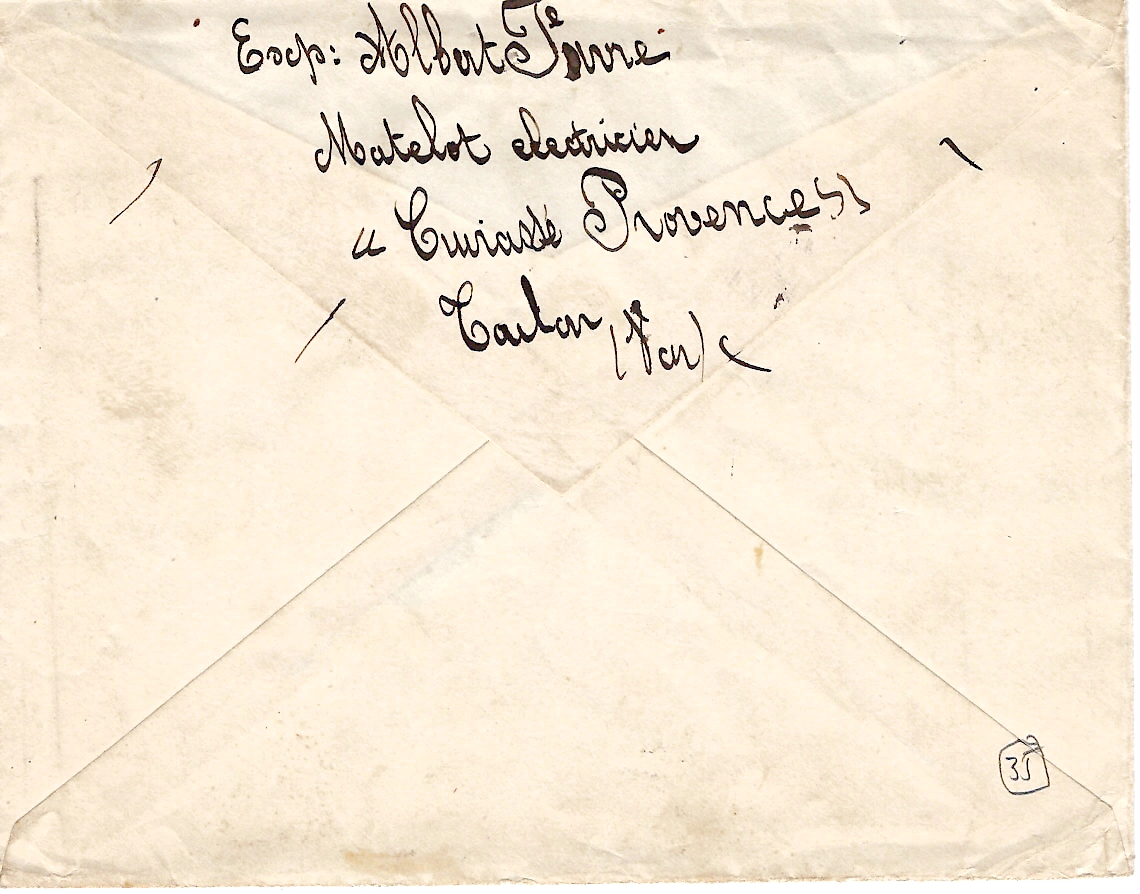 Exp: Albert
Matelot electricien
" Cuirassé Provence "
Toulon (Var)
35